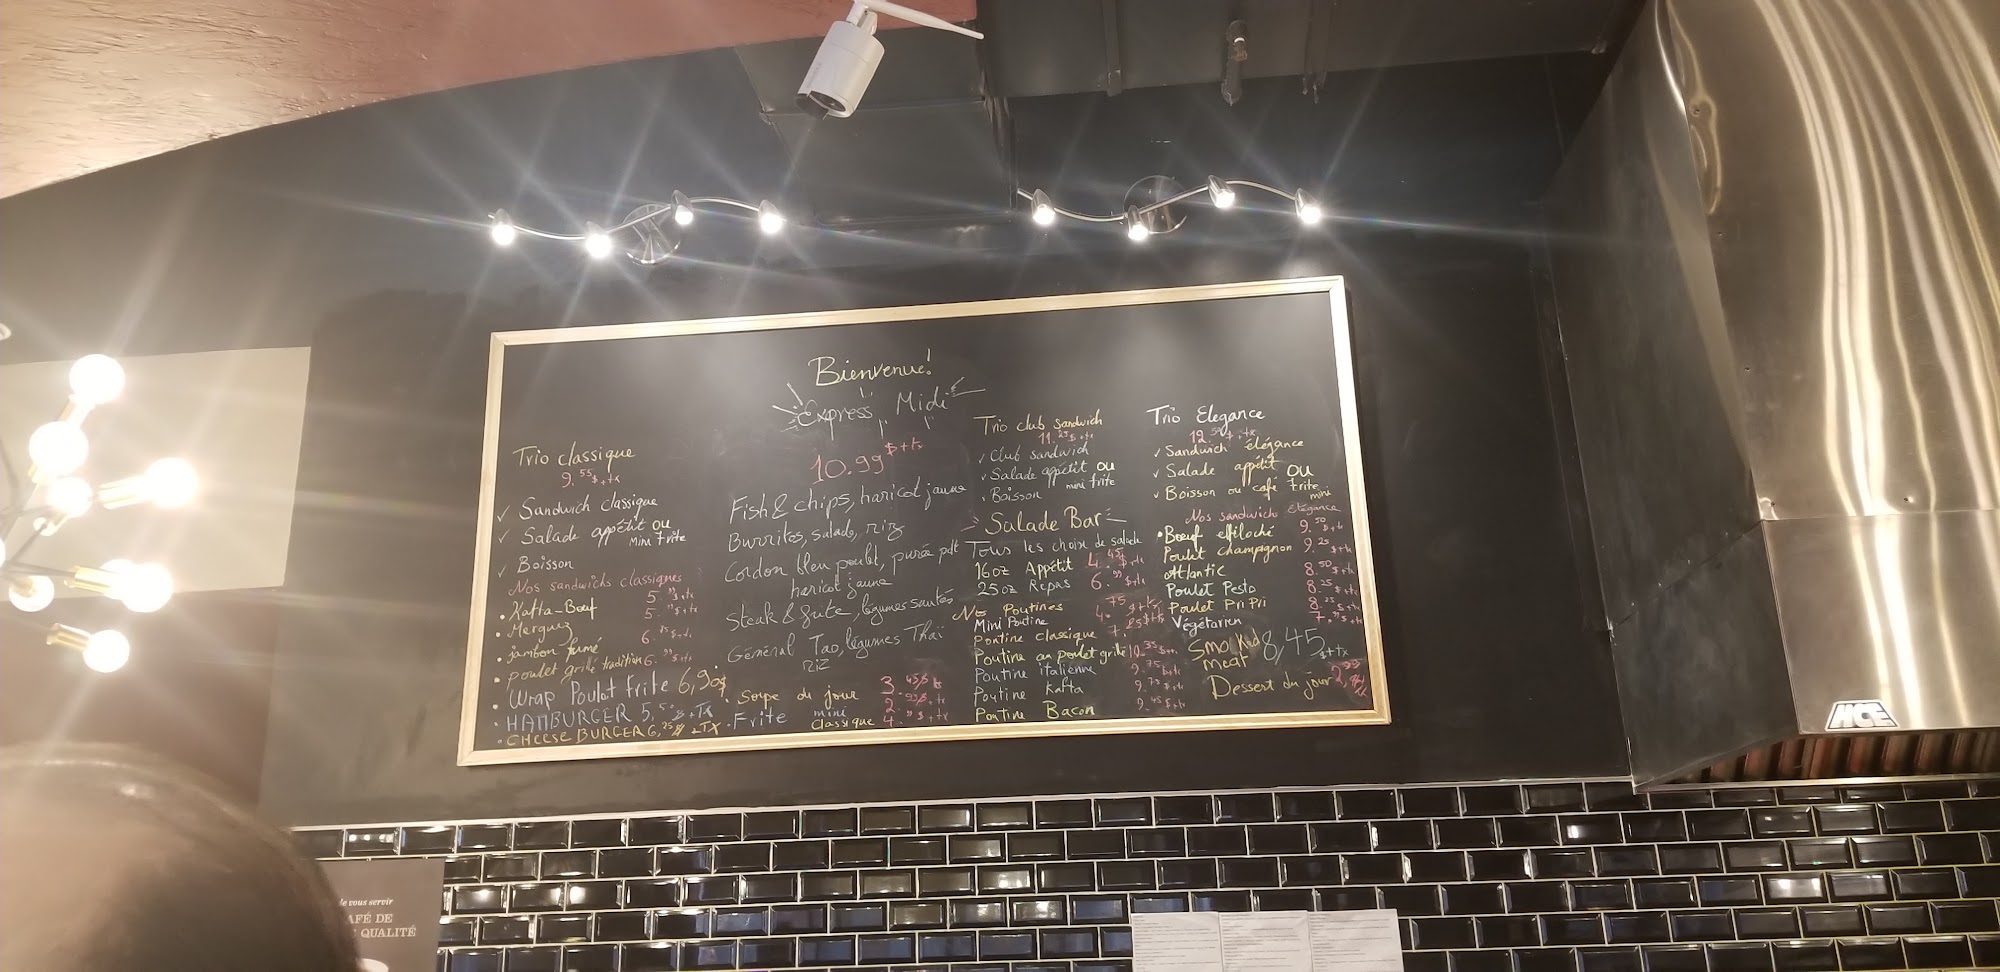 Bienvenue!
Express Midi
10.99 $+tx
Fish & chips, haricot jaune
Burritos, salade, riz
Cordon bleu poulet, purée pdt
haricot jaune
Steak & frite, légumes sautés
Général Tao, légumes Thaï
riz
Soupe du jour 3.45$
Frite mini
classique
Trio classique
9.55$+tx
✓ Sandwich classique
✓ Salade appétit ou
mini frite
✓ Boisson
Nos sandwichs classiques
• Kafta-Bœuf
• Merguez
• jambon fumé
• poulet grillé tradition
• Wrap Poulot frite 6,90$
• HAMBURGER 5,50$+TX
• CHEESEBURGER 6,25$+TX
Trio club sandwich
11.25$+tx
✓ Club sandwich
✓ Salade appétit ou
mini frite
• Boisson
Salade Bar
Tous les choix de salade
16oz Appétit 4.45$+tx
25oz Repas 6.99$+tx
Nos Poutines
Mini Poutine
Poutine classique
Poutine au poulet grillé 10.35$+tx
Poutine italienne 9.75$+tx
Poutine Kafta 9.75$+tx
Poutine Bacon 9.45$+tx
Trio Elegance
12.50$+tx
✓ Sandwich élégance
✓ Salade appétit ou
✓ Boisson ou café frite
mini
Nos sandwichs élégance
• Bœuf effiloché 9.50$+tx
Poulet champignon 9.25$+tx
Atlantic 8.50$+tx
Poulet Pesto 8.25$+tx
Poulet Pri Pri 8.25$+tx
Végétarien
Smo Ked 8,45$+tx
meat
Dessert du jour
HCE
de vous servir
AFÉ DE
QUALITÉ